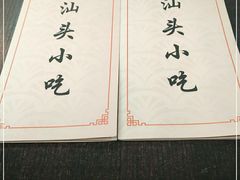 汕头小吃
汕头小吃